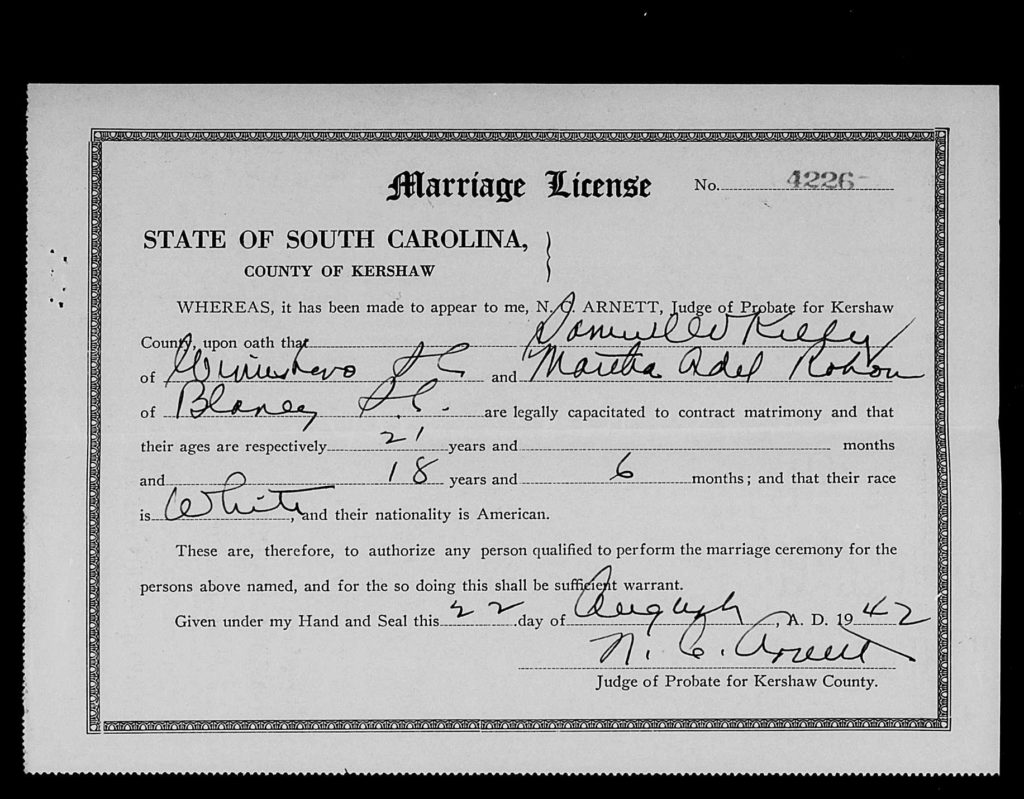 Marriage License No. 4226
STATE OF SOUTH CAROLINA,
COUNTY OF KERSHAW
WHEREAS, it has been made to appear to me, N. C. ARNETT, Judge of Probate for Kershaw
County, upon oath that
of S C and Martha Adel
of Blaney S.C. are legally capacitated to contract matrimony and that
their ages are respectively 21 years and months
and 18 years and 6 months; and that their race
is White, and their nationality is American.
These are, therefore, to authorize any person qualified to perform the marriage ceremony for the
persons above named, and for the so doing this shall be sufficient warrant.
Given under my Hand and Seal this 22 day of August, A. D. 1942
N. C. Arnett
Judge of Probate for Kershaw County.